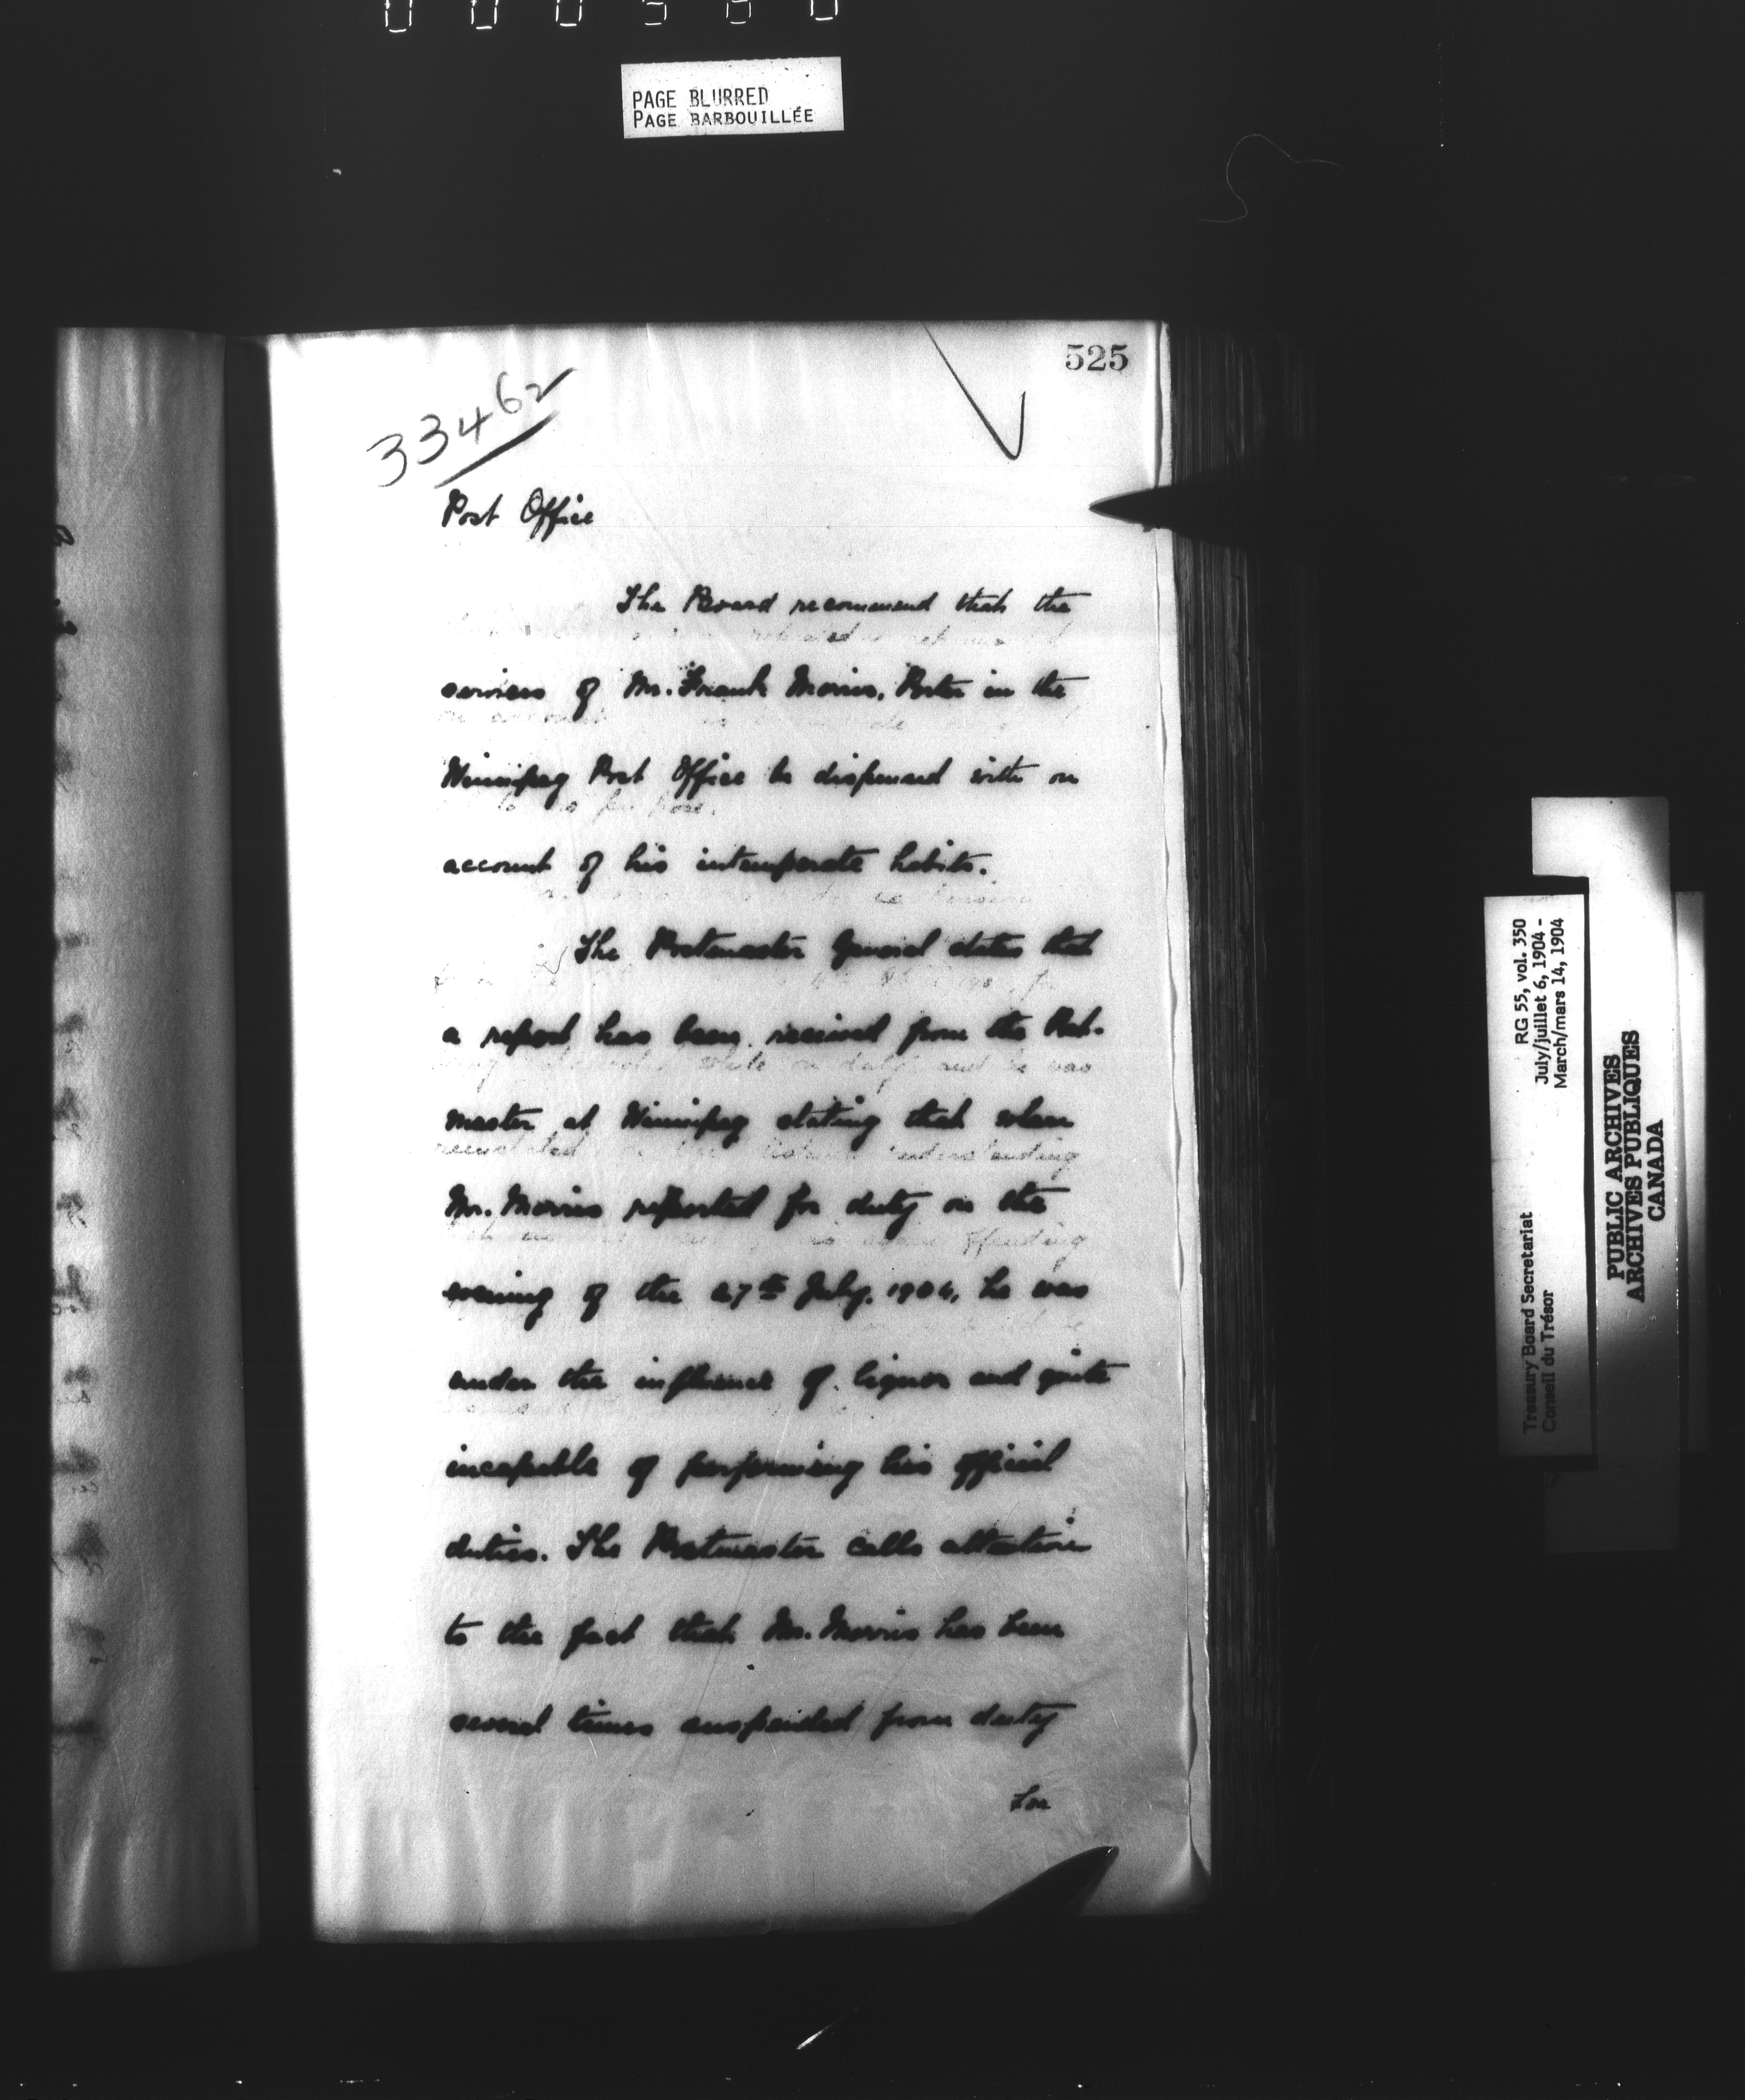 PAGE BLURRED
PAGE BARBOUILLÉE
525
33462
Post Office
The Board recommend that the
services of Mr. Frank Morris, Porter in the
Winnipeg Post Office be dispensed with on
account of his intemperate habits.
The Postmaster General states that
a report has been received from the Post-
master at Winnipeg stating that when
Mr. Morris reported for duty on the
evening of the 27th July, 1904, he was
under the influence of liquor and quite
incapable of performing his official
duties. The Postmaster calls attention
to the fact that Mr. Morris has been
several times suspended from duty
for
Treasury Board Secretariat RG 55, vol. 350
Conseil du Trésor July/juillet 6, 1904 -
March/mars 14, 1904
PUBLIC ARCHIVES
ARCHIVES PUBLIQUES
CANADA